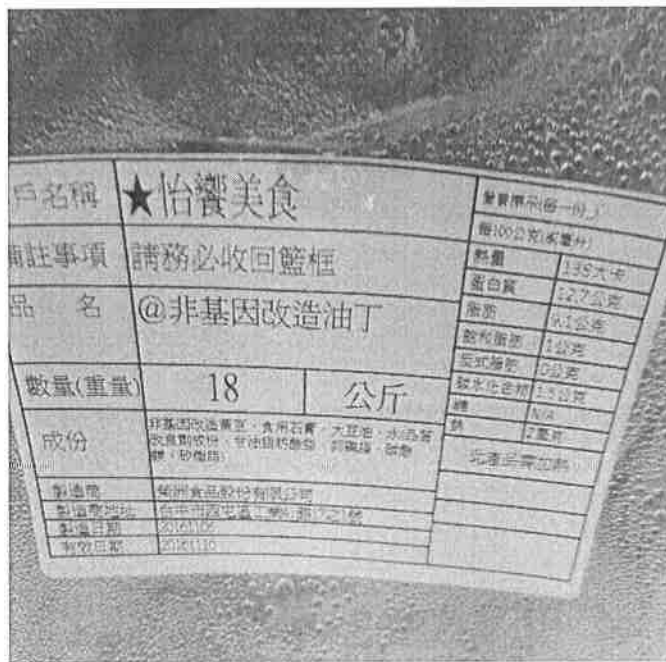 戶名稱 ★怡饗美食
備註事項 請務必收回籃框
品 名 @非基因改造油丁
數量(重量) 18 公斤
成份 非基因改造黃豆、食用石膏、大豆油、水(品質
改良劑成份、甘油脂肪酸酯、碳酸
鎂、矽樹脂)
製造商 食品股份有限公司
製造商地址 台中市西屯區工業
製造日期 20161106
有效日期 20161110
營養標示
每100公克
熱量 135大卡
蛋白質 12.7公克
脂肪 9.1公克
飽和脂肪 1公克
反式脂肪 0公克
碳水化合物 1.5公克
糖 N/A
鈉 2毫克
此產品需加熱